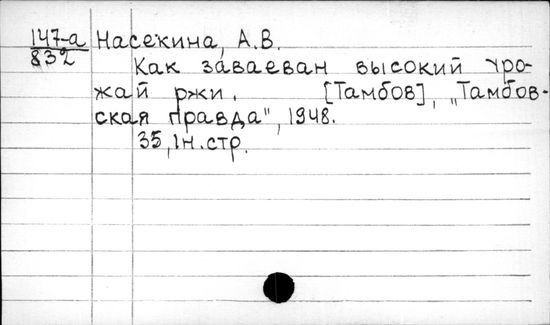 147-а Насекина, А.В.
832
Как заваеван высокий уро-
жай ржи. [Тамбов], "Тамбов-
ская правда", 1948.
35, 1н.стр.